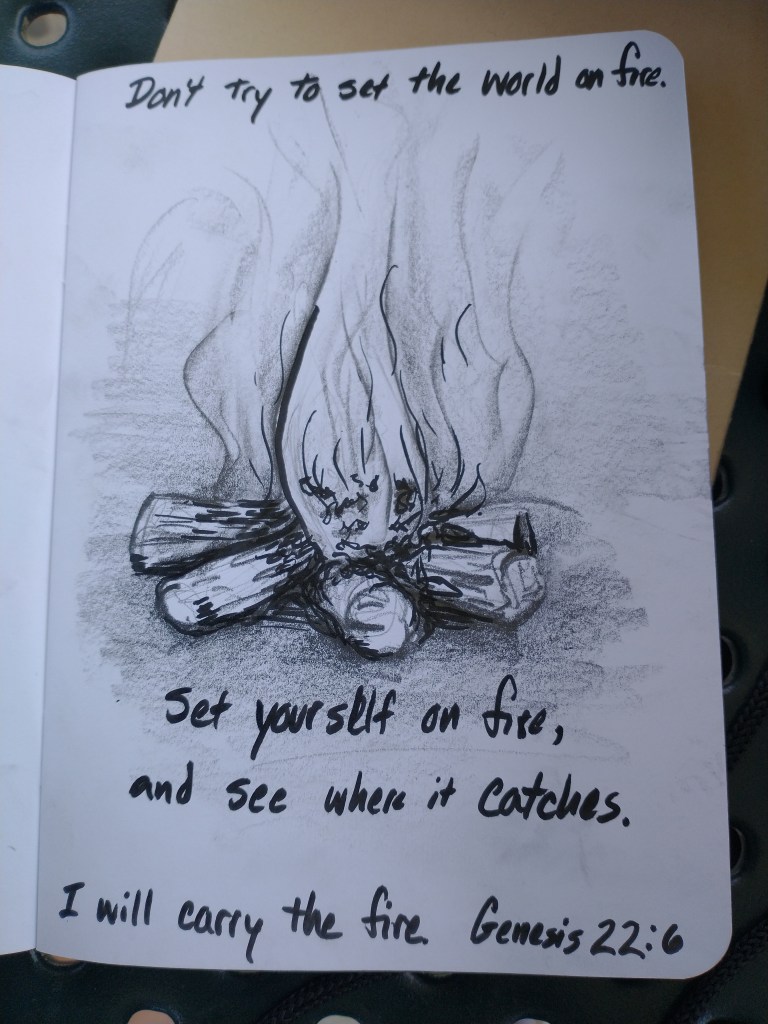 Don't try to set the world on fire.
Set yourself on fire,
and see where it catches.
I will carry the fire. Genesis 22:6